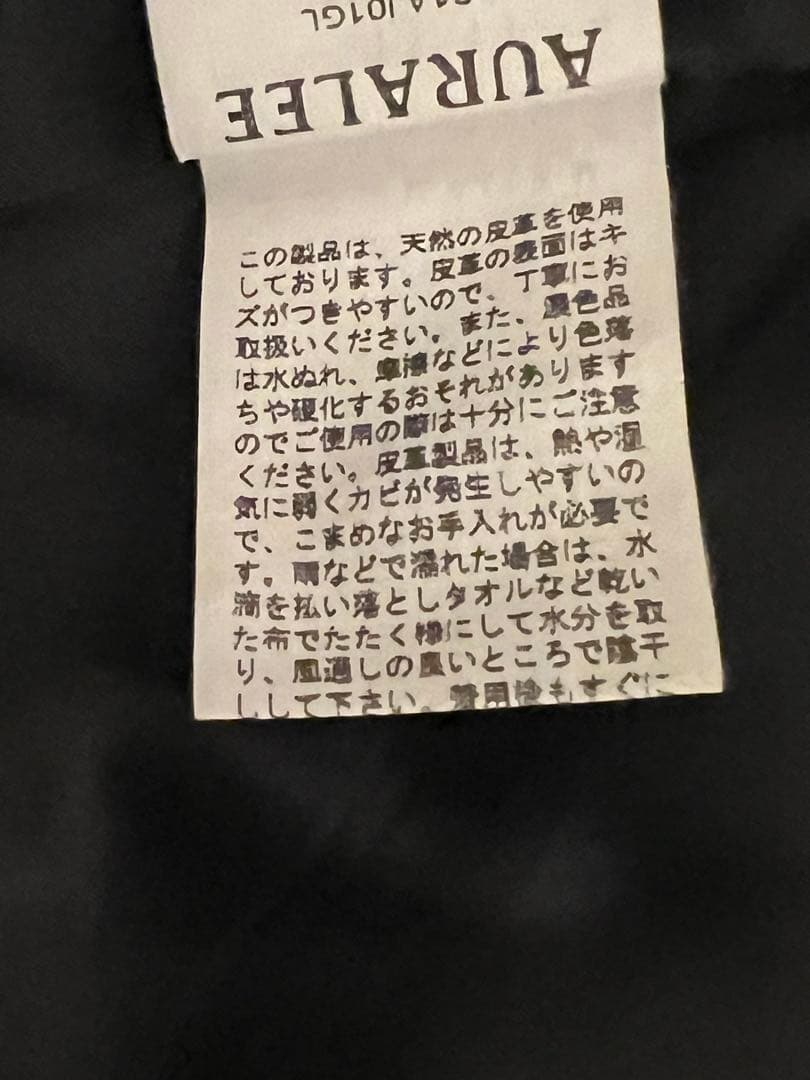 AJ01GL
AURALEE
この製品は、天然の皮革を使用
しております。皮革の表面はキ
ズがつきやすいので、丁寧にお
取扱いください。また、濃色品
は水ぬれ、摩擦などにより色落
ちや硬化するおそれがあります
のでご使用の際は十分にご注意
ください。皮革製品は、熱や湿
気に弱くカビが発生しやすいの
で、こまめなお手入れが必要で
す。雨などで濡れた場合は、水
滴を払い落としタオルなど乾い
た布でたたく様にして水分を取
り、風通しの良いところで陰干
しして下さい。着用後もすぐに